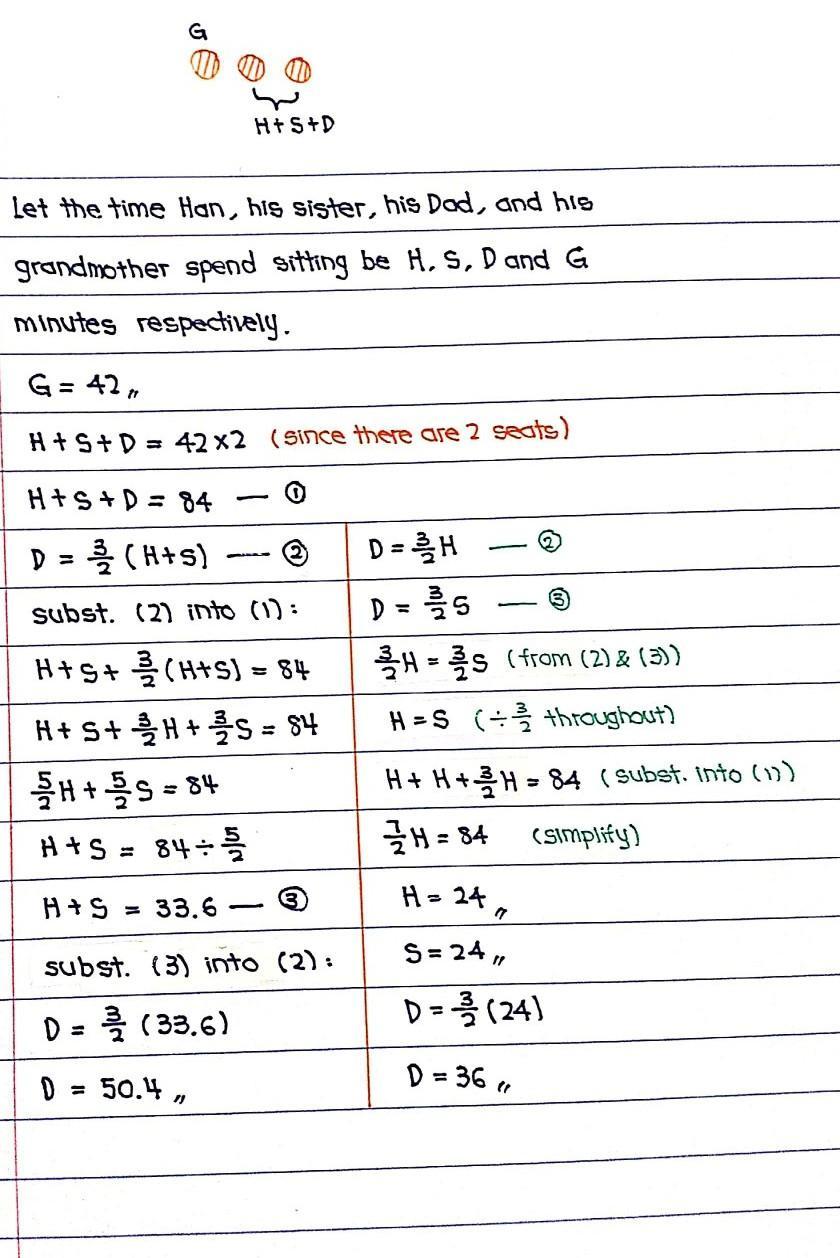 G
H+S+D
Let the time Han, his sister, his Dad, and his
grandmother spend sitting be H, S, D and G
minutes respectively.
G = 42 „
H+S+D = 42×2 (since there are 2 seats)
H+S+D = 84 — ①
D = 3/2 (H+S) — ②
subst. (2) into (1):
H+S+ 3/2 (H+S) = 84
H+S+ 3/2 H + 3/2 S = 84
5/2 H + 5/2 S = 84
H+S = 84 ÷ 5/2
H+S = 33.6 — ③
subst. (3) into (2):
D = 3/2 (33.6)
D = 50.4 „
D = 3/2 H — ②
D = 3/2 S — ③
3/2 H = 3/2 S (from (2) & (3))
H = S (÷ 3/2 throughout)
H + H + 3/2 H = 84 (subst. into (1))
7/2 H = 84 (simplify)
H = 24 „
S = 24 „
D = 3/2 (24)
D = 36 „